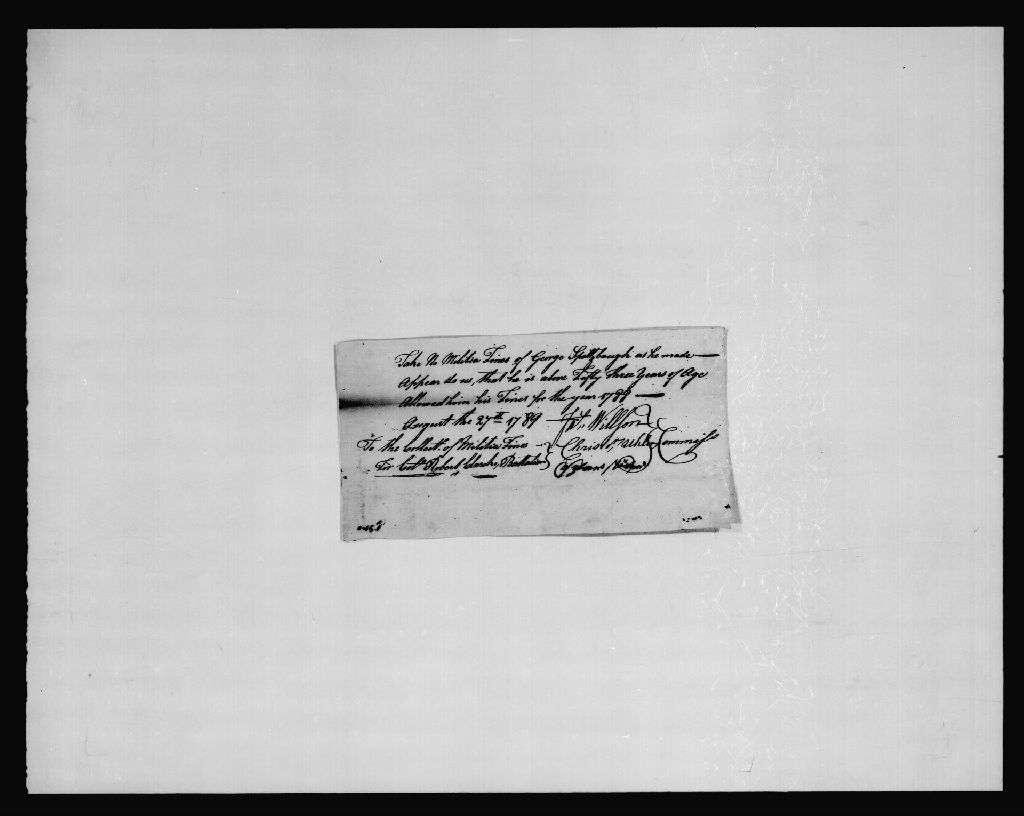 Take No Militia Fines of George Spellzbaugh as he made
Appear to us, that he is above Fifty three Years of Age
Allowed him his Fines for the year 1789
August the 27th 1789 Willson
To the Collectr. of Militia Fines Christ. Commiss
For Colo. Robert Clarke, Battalion